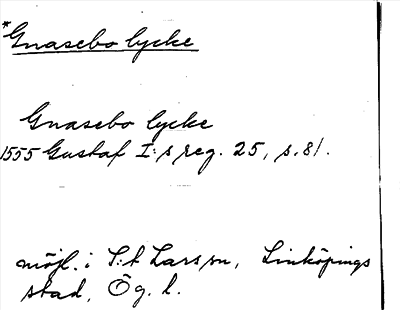 *Gnasebo lycke
Gnasebo lycke
1555 Gustaf I:s reg. 25, s. 81.
möjl. i S:t Lars sn, Linköpings
stad, Ög. l.